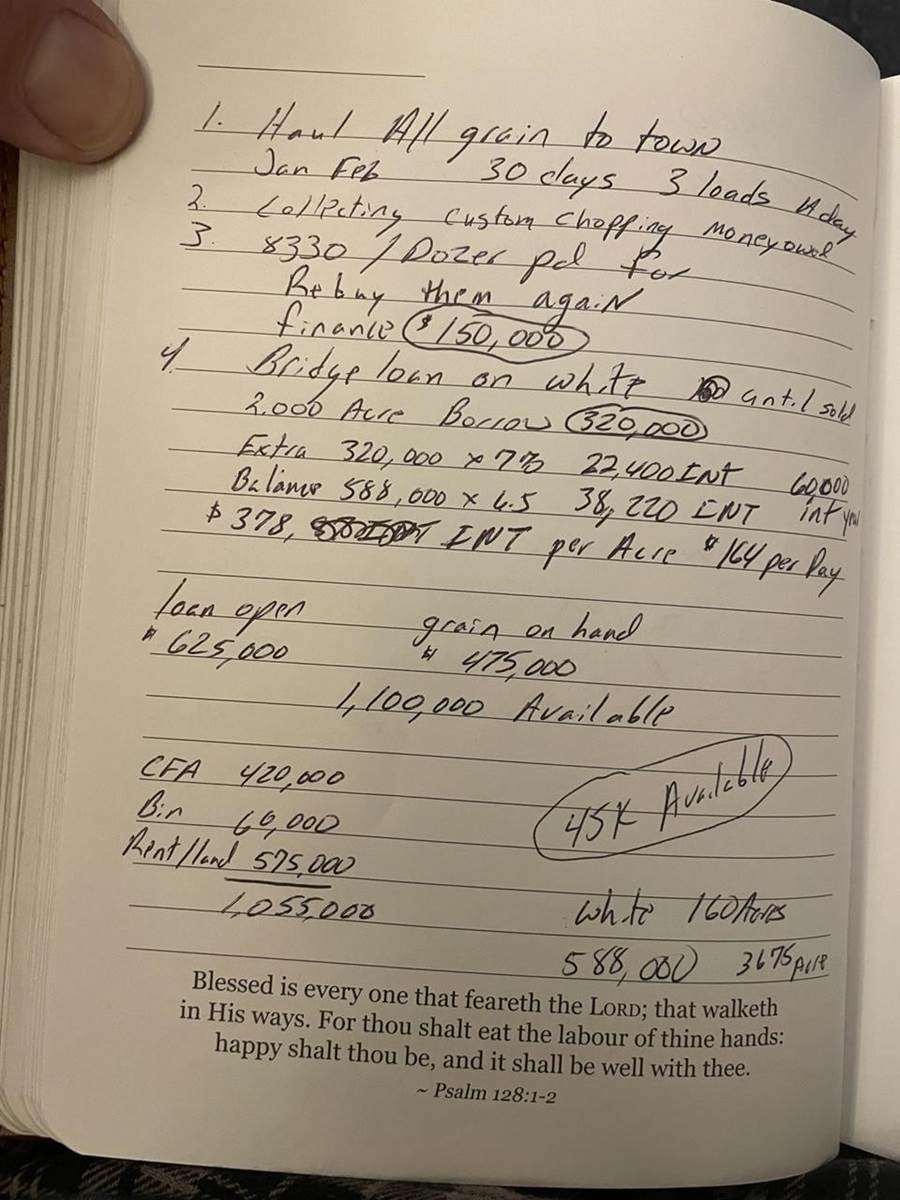 1. Haul All grain to town
Jan Feb 30 days 3 loads A day
2. Collecting custom chopping money owed
3. 8330 / Dozer pd for
Rebuy them again
finance $150,000
4. Bridge loan on white until sold
2,000 Acre Borrow 320,000
Extra 320,000 x 7% 22,400 INT 60,000
Balance 588,000 x 6.5 38,220 INT int year
$378, INT per Acre $164 per Day
loan open grain on hand
$625,000 $475,000
1,100,000 Available
CFA 420,000
45K Available
Bin 60,000
Rent/land 575,000
1,055,000 white 160 Acres
588,000 3675 Acre
Blessed is every one that feareth the LORD; that walketh
in His ways. For thou shalt eat the labour of thine hands:
happy shalt thou be, and it shall be well with thee.
~ Psalm 128:1-2